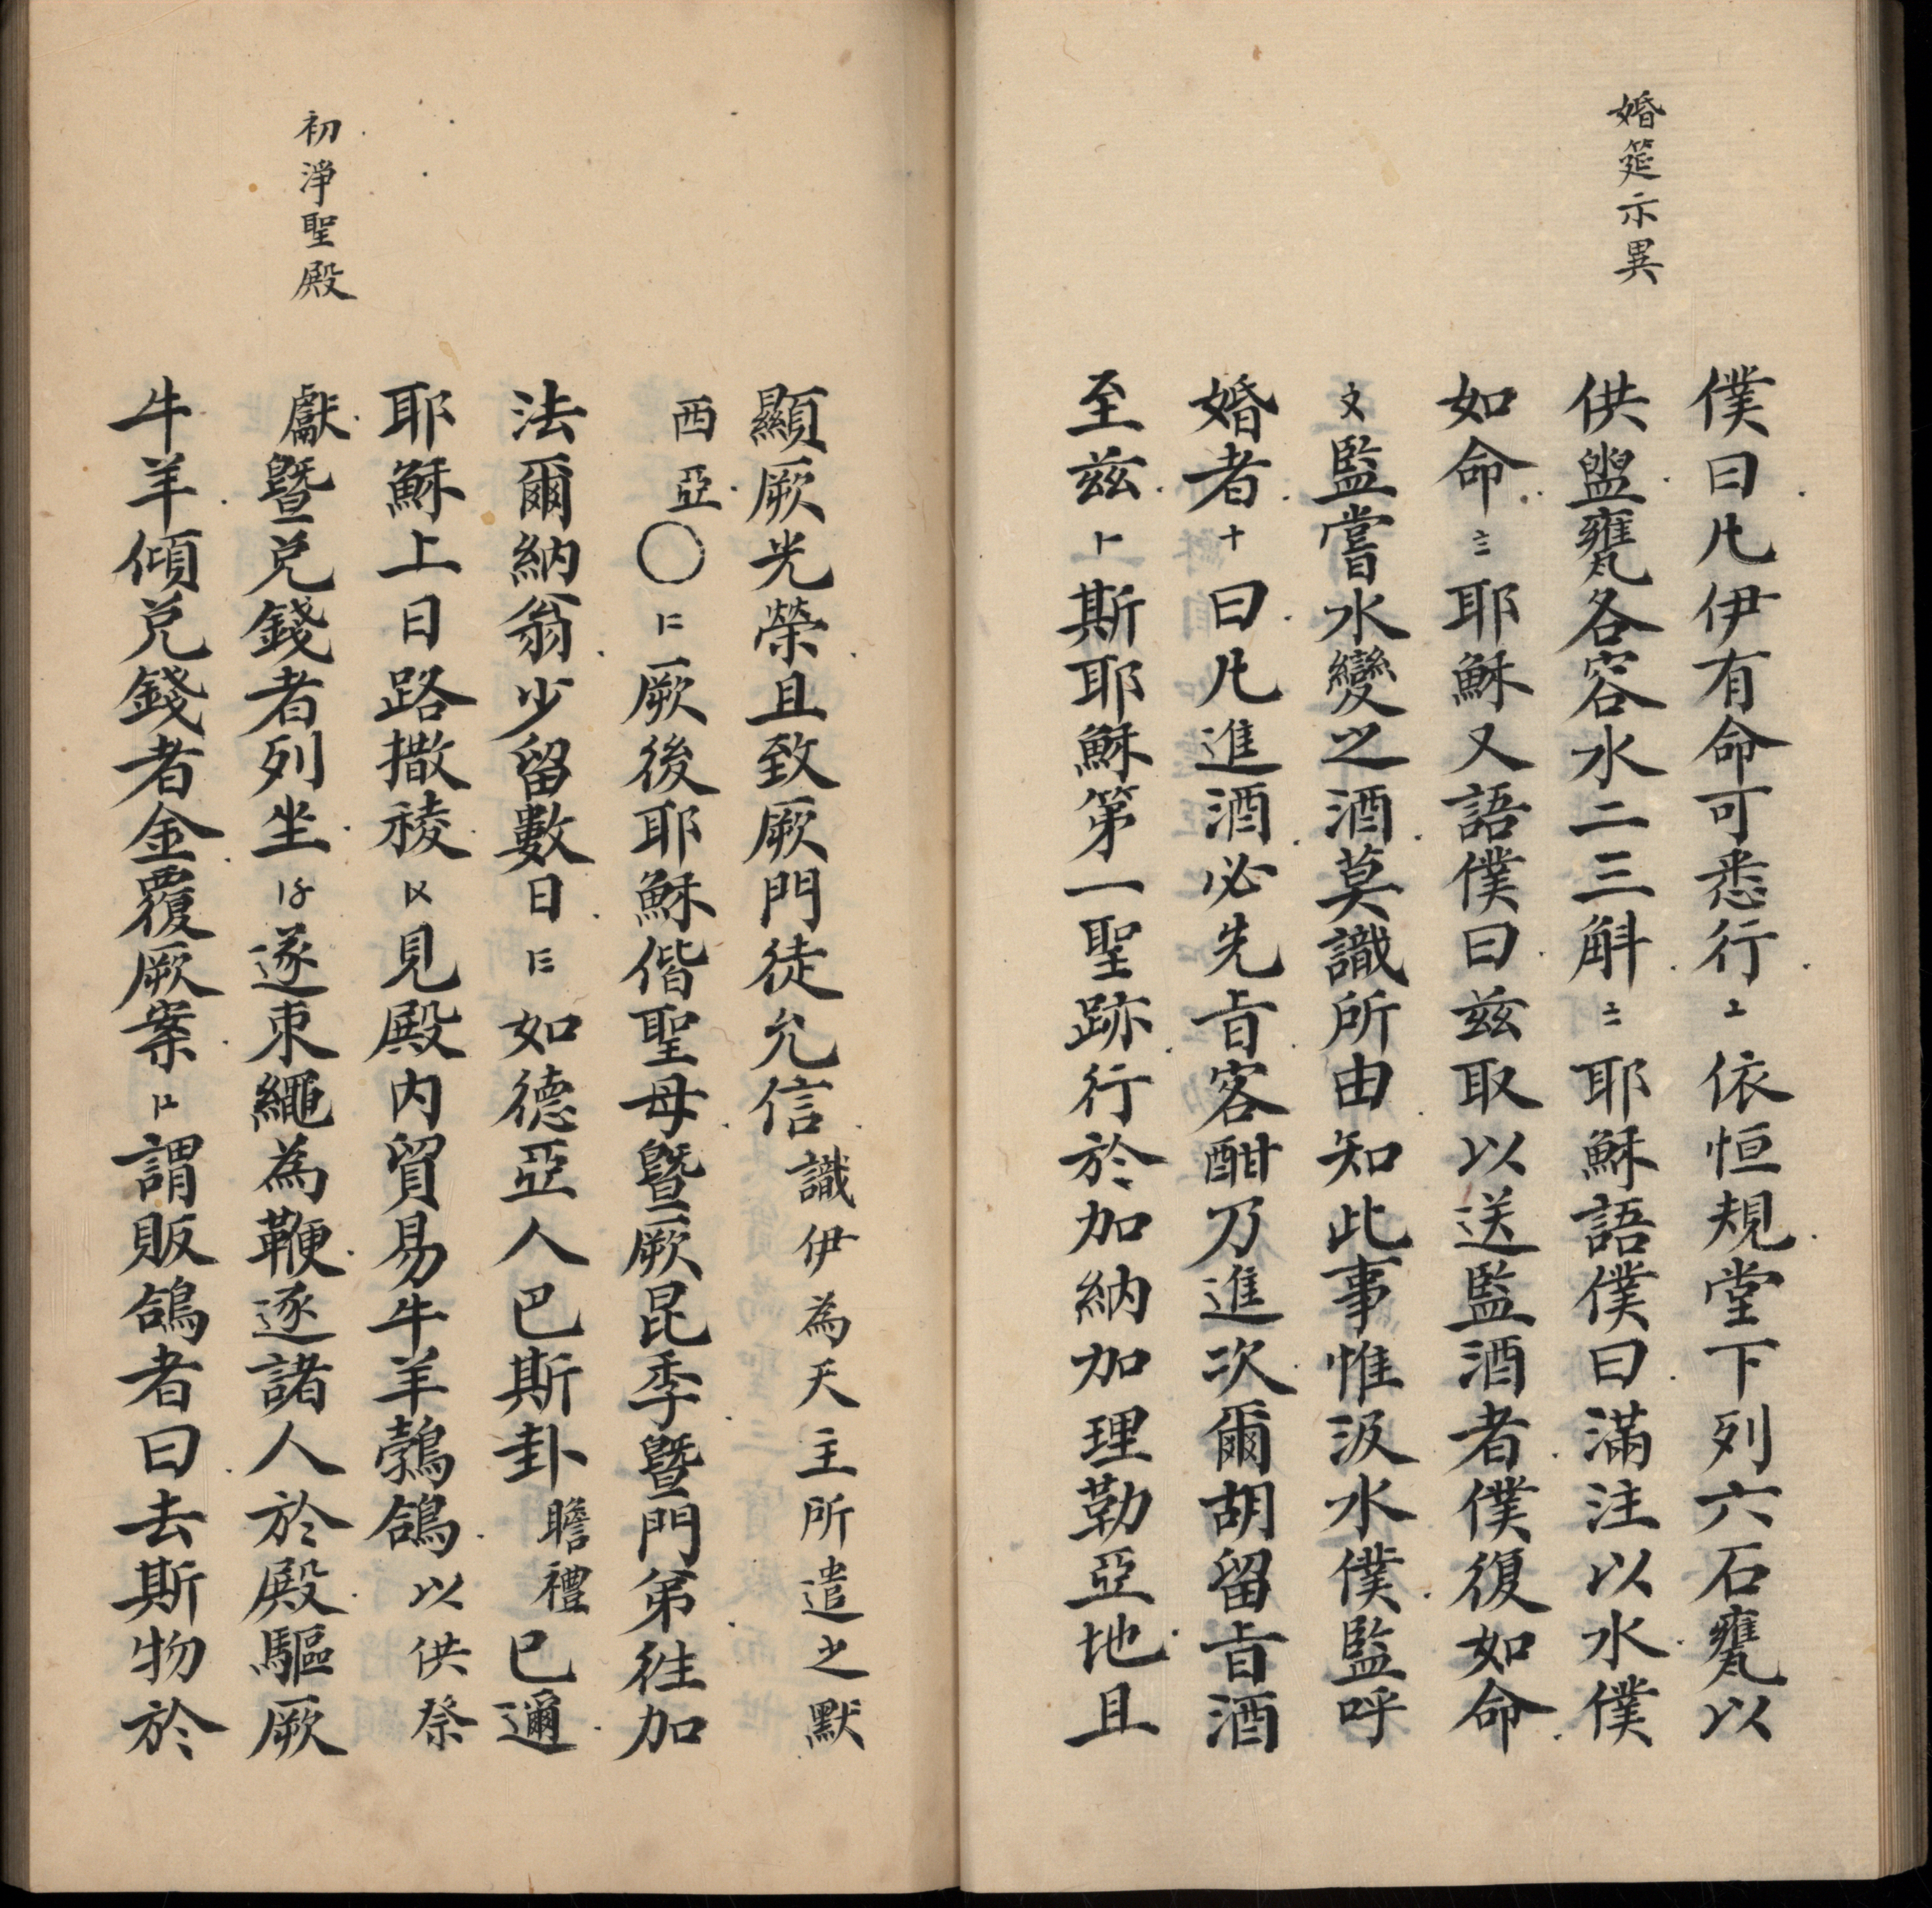 婚筵示異
僕曰凡伊有命可悉行〦依恒規堂下列六石甕以
供盥甕各容水二三斛〧耶穌語僕曰滿注以水僕
如命〨耶穌又語僕曰茲取以送監酒者僕復如命
〩監嘗水變之酒莫識所由知此事惟汲水僕監呼
婚者十曰凡進酒必先旨客酣乃進次爾胡留旨酒
至茲〡斯耶穌第一聖跡行於加納加理勒亞地且
顯厥光榮且致厥門徒允信識伊為天主所遣之默
西亞〇〡〢厥後耶穌偕聖母暨厥昆季暨門弟徃加
法爾納翁少留數日〡〣如德亞人巴斯卦瞻禮已邇
耶穌上日路撒稜〡〤見殿内貿易牛羊鶉鴿以供祭
獻暨兌錢者列坐〡〥遂束繩為鞭逐諸人於殿驅厥
牛羊傾兌錢者金覆厥案〡〦謂販鴿者曰去斯物於
初淨聖殿